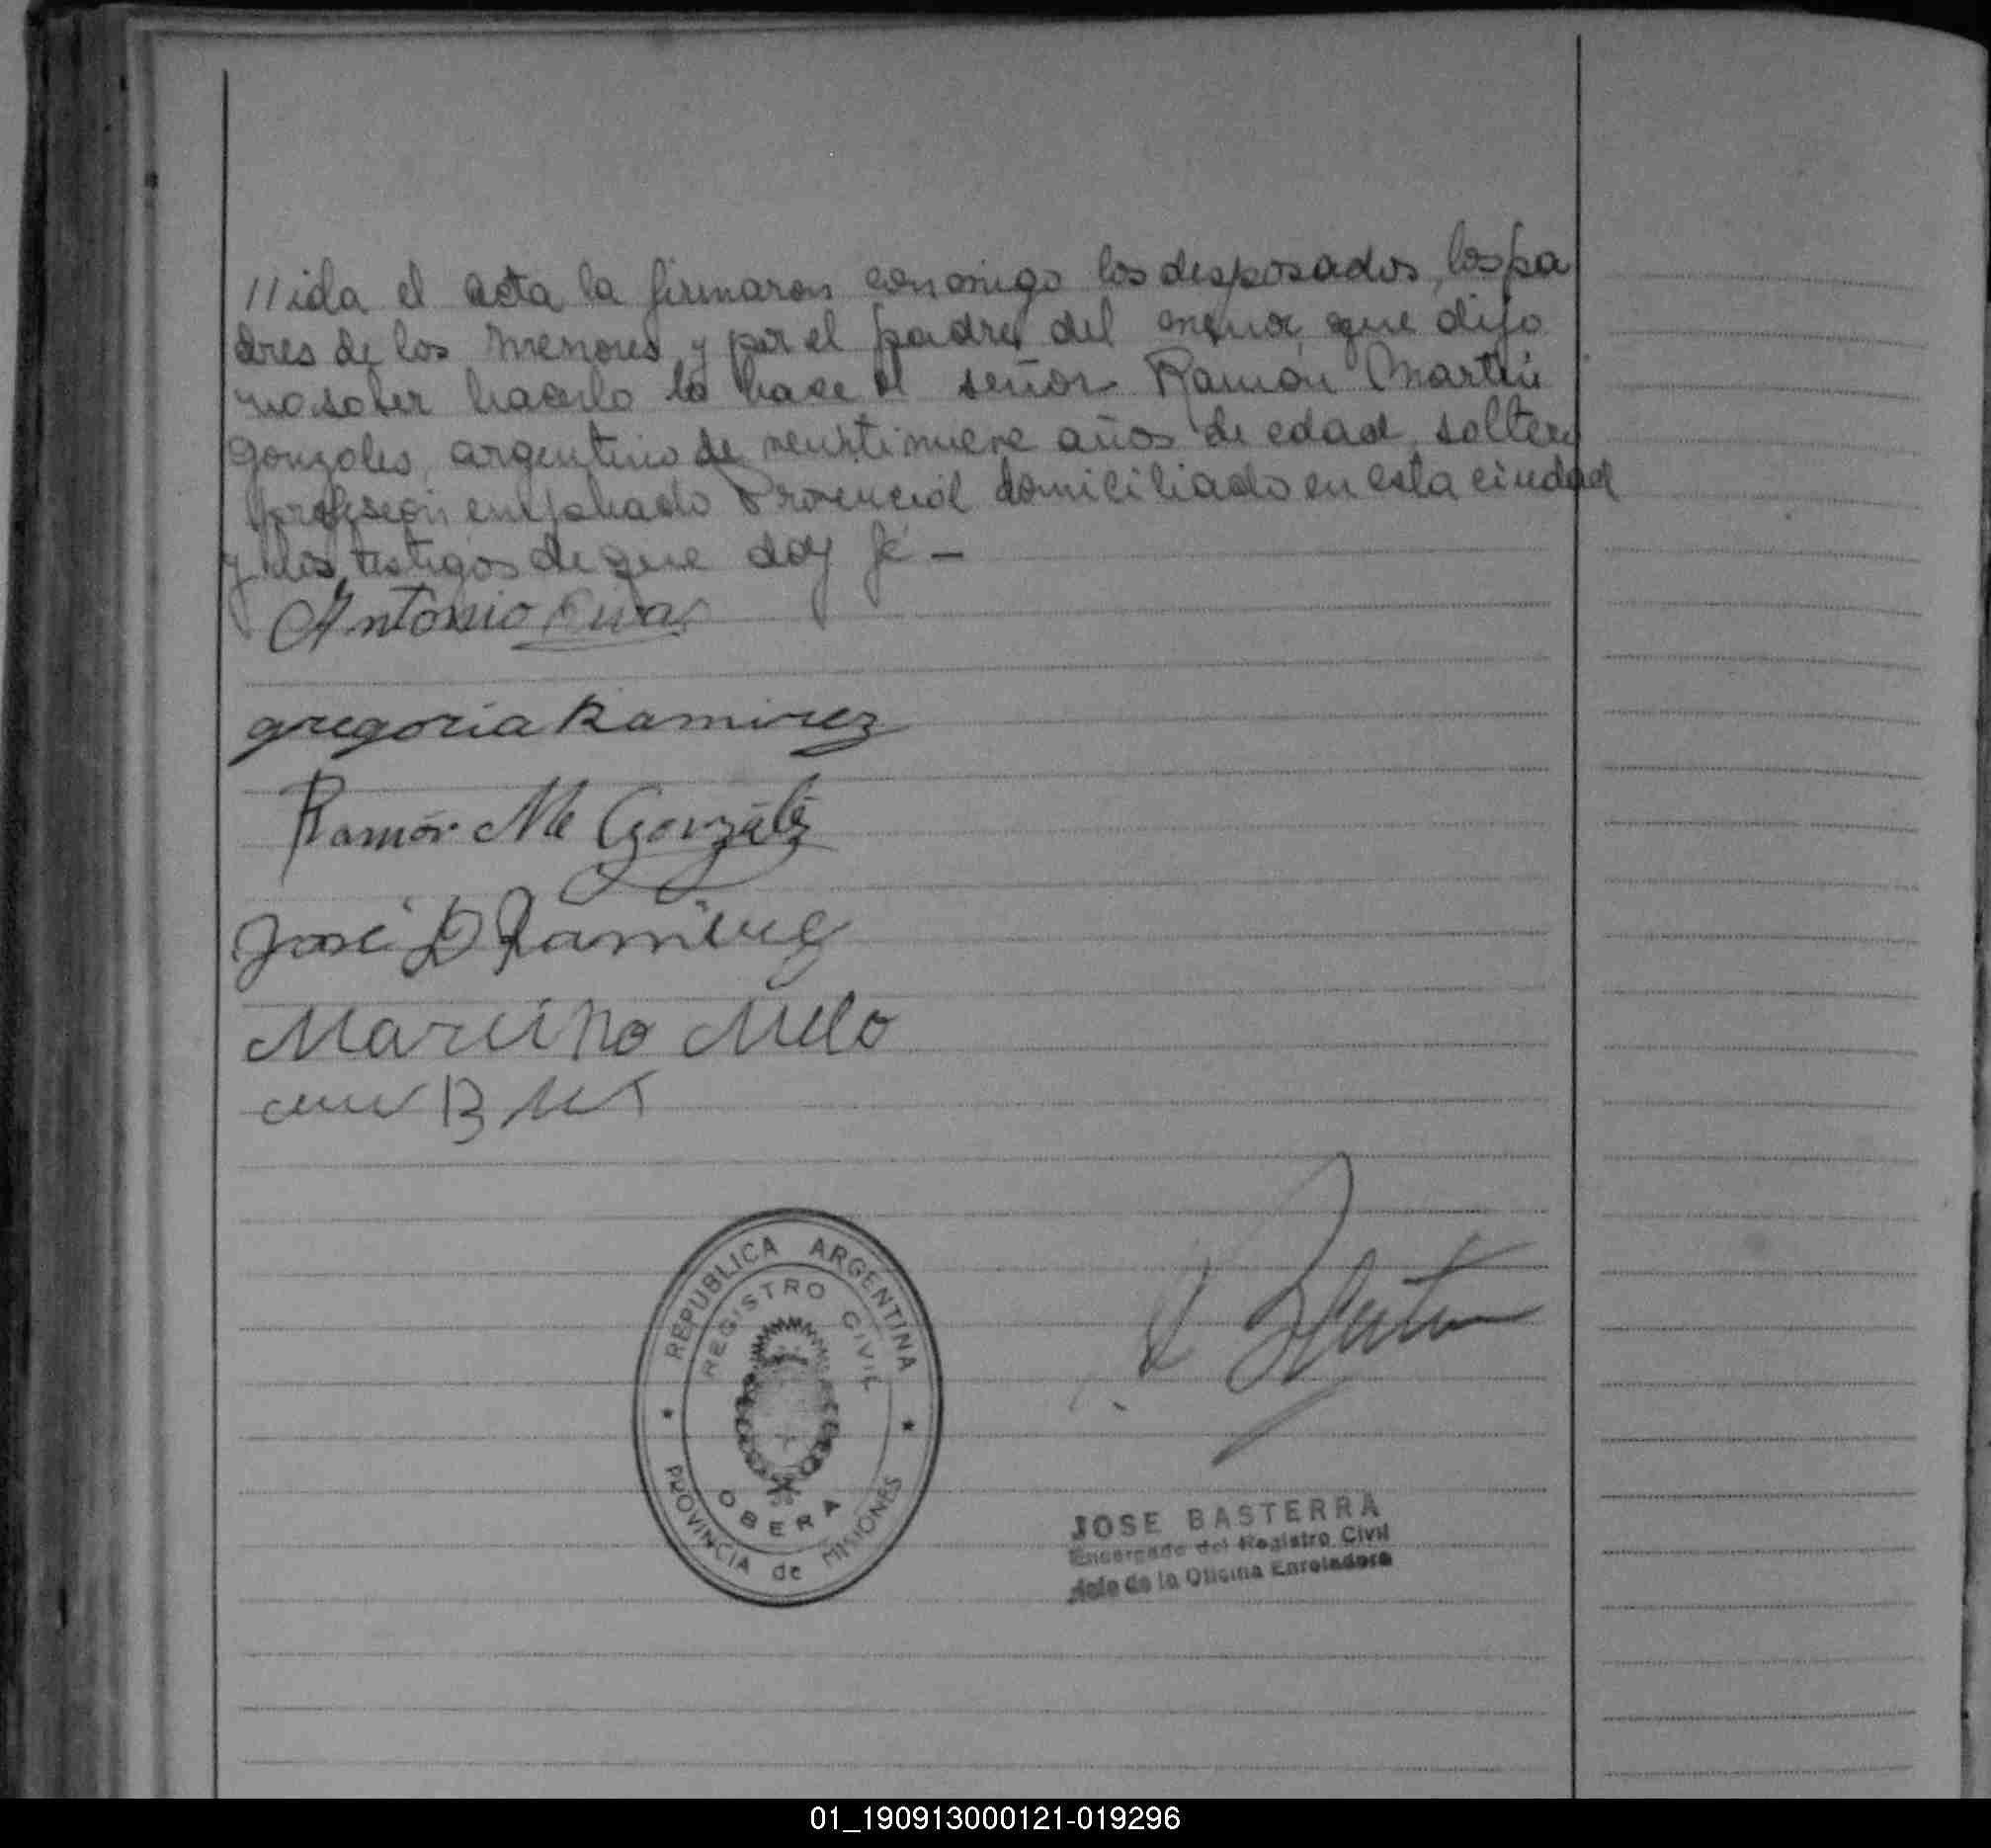 //ida el acta la firmaron conmigo los desposados, los pa
dres de los menores y por el padre del menor que dijo
no saber hacerlo lo hace el señor Ramón Martín
Gonzales, argentino de veintinueve años de edad, soltero
profesión empleado Provincial domiciliado en esta ciudad
y los testigos de que doy fé -
Antonio
gregoria Ramirez
Ramón Mn González
José D Ramírez
Marcino Melo
REPUBLICA ARGENTINA
REGISTRO CIVIL
OBERA
PROVINCIA de MISIONES
JOSE BASTERRA
Encargado del Registro Civil
Jefe de la Oficina Enroladora
01_190913000121-019296